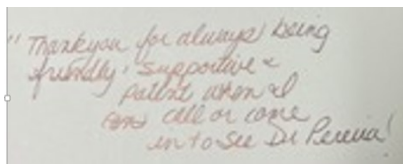 "Thankyou for always being
friendly, supportive &
patient when I
call or come
in to see Dr Pereira!